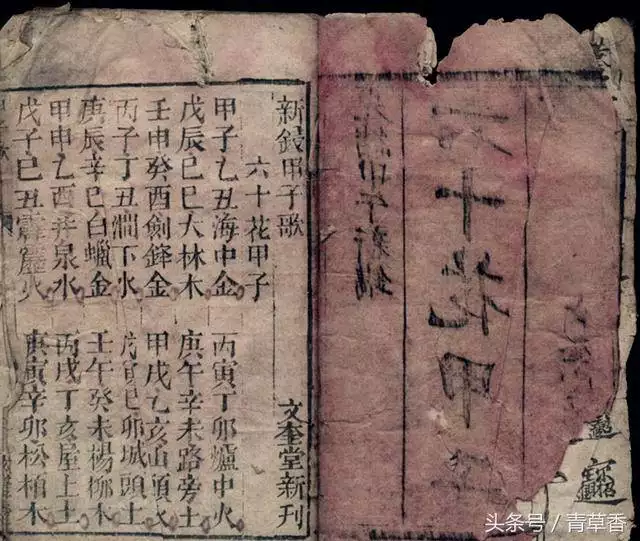 十花甲
甲午新鐫
新鋟甲子歌 文奎堂新刊
六十花甲子
甲子乙丑海中金 丙寅丁卯爐中火
戊辰巳巳大林木 庚午辛未路旁土
壬申癸酉劍鋒金 甲戌乙亥山頭火
丙子丁丑澗下水 戊寅巳卯城頭土
庚辰辛巳白蠟金 壬午癸未楊柳木
甲申乙酉井泉水 丙戌丁亥屋上土
戊子巳丑霹靂火 庚寅辛卯松柏木
头条号 / 青草香